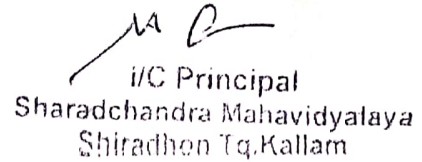 i/C Principal
Sharadchandra Mahavidyalaya
Shiradhon Tq.Kallam